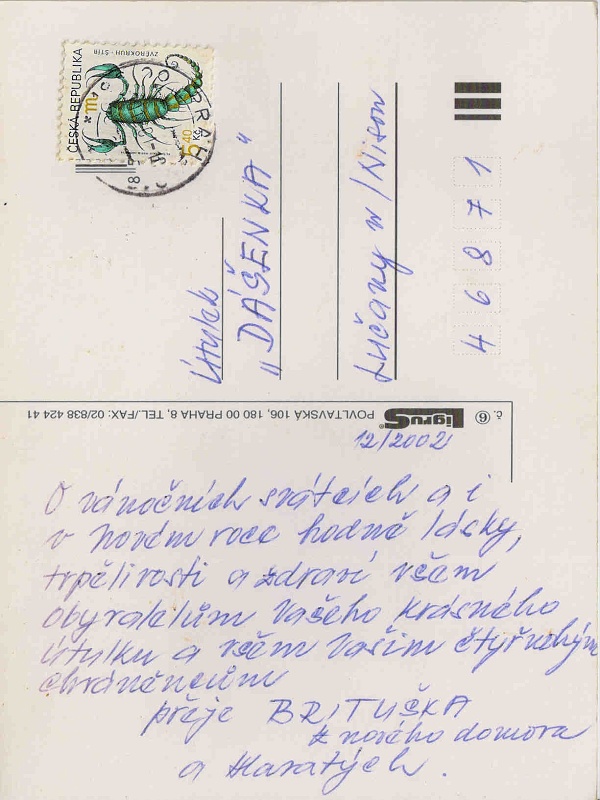 ČESKÁ REPUBLIKA
ZVĚROKRUH - ŠTÍR
5,40 Kč
Útulek
„DÁŠENKA“
Lučany n/Nisou
46871
č. 6 LigruS POVLTAVSKÁ 106, 180 00 PRAHA 8, TEL./FAX: 02/838 424 41
12/2002
O vánočních svátcích a i
v novém roce hodně lásky,
trpělivosti a zdraví všem
obyvatelům Vašeho krásného
útulku a všem Vašim čtyřnohým
chráněncům
přeje BRITUŠKA
z nového domova
a